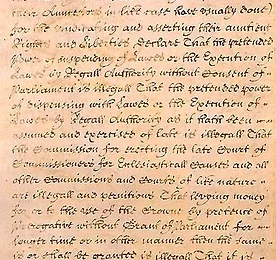 their Auncestors in like case have usually done)
for the vindicating and asserting their auntient
Rights and Liberties, Declare That the pretended
Power of suspending of Lawes or the Execution of
Lawes by Regall Authority without Consent of
Parliament is illegall That the pretended power
of dispensing with Lawes or the Execution of
Lawes by Regall Authority as it hath been
assumed and exercised of late is illegall That
the Commission for erecting the late Court of
Commissioners for Eclesiasticall Causes and all
other Commissions and Courts of like nature
are illegall and pernitious That levying money
for or to the use of the Crowne by pretence of
Prerogative without Grant of Parliament for
longer time or in other manner then the same
is or shall be granted is illegall That it is